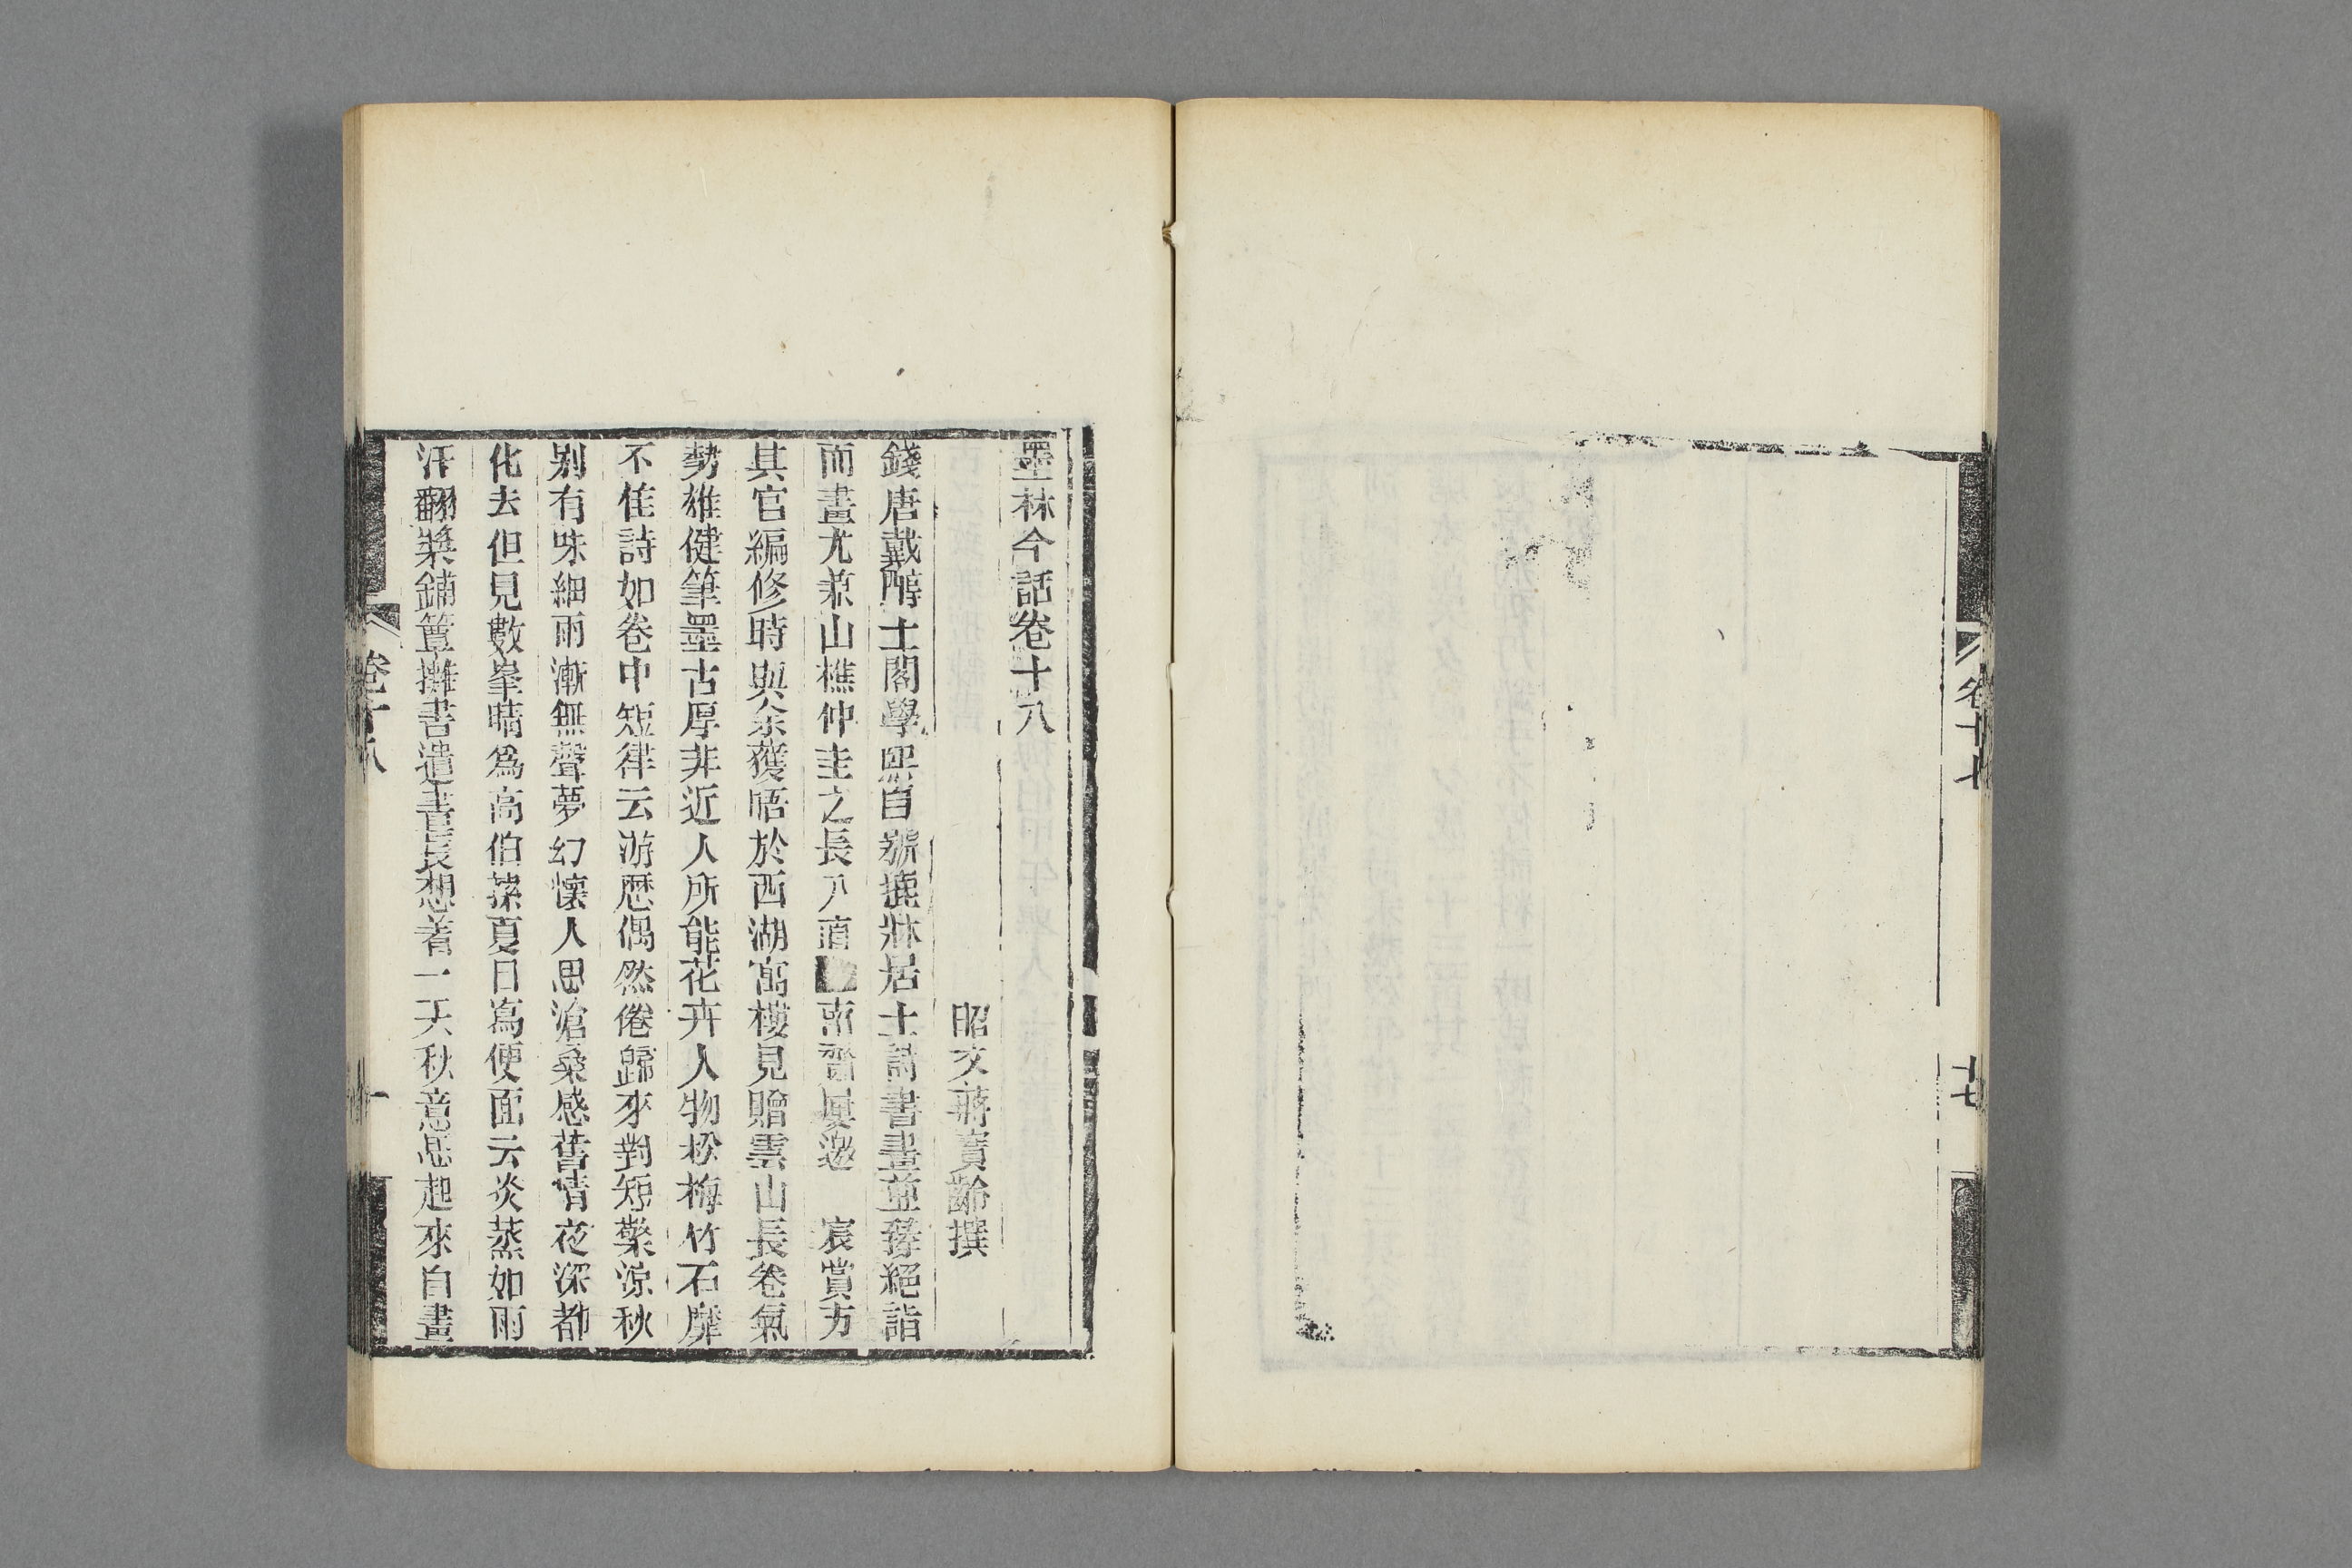 卷十七
十七
墨林今話卷十八
昭文蔣寶齡撰
錢唐戴醇士閣學熙自號鹿牀居士詩書畫並臻絕詣
而畫尤兼山樵仲圭之長入直南齋屢邀宸賞方
其官編修時與余獲晤於西湖寓樓見贈雲山長卷氣
勢雄健筆墨古厚非近人所能花卉人物松梅竹石靡
不佳詩如卷中短律云游歷偶然倦歸來對短檠涼秋
別有味細雨漸無聲夢幻懷人思滄桑感舊情夜深都
化去但見數峯晴爲高伯葇夏日寫便面云炎蒸如雨
汗翻漿鋪簟攤書遣晝長想着一天秋意思起來自畫
卷十八
一